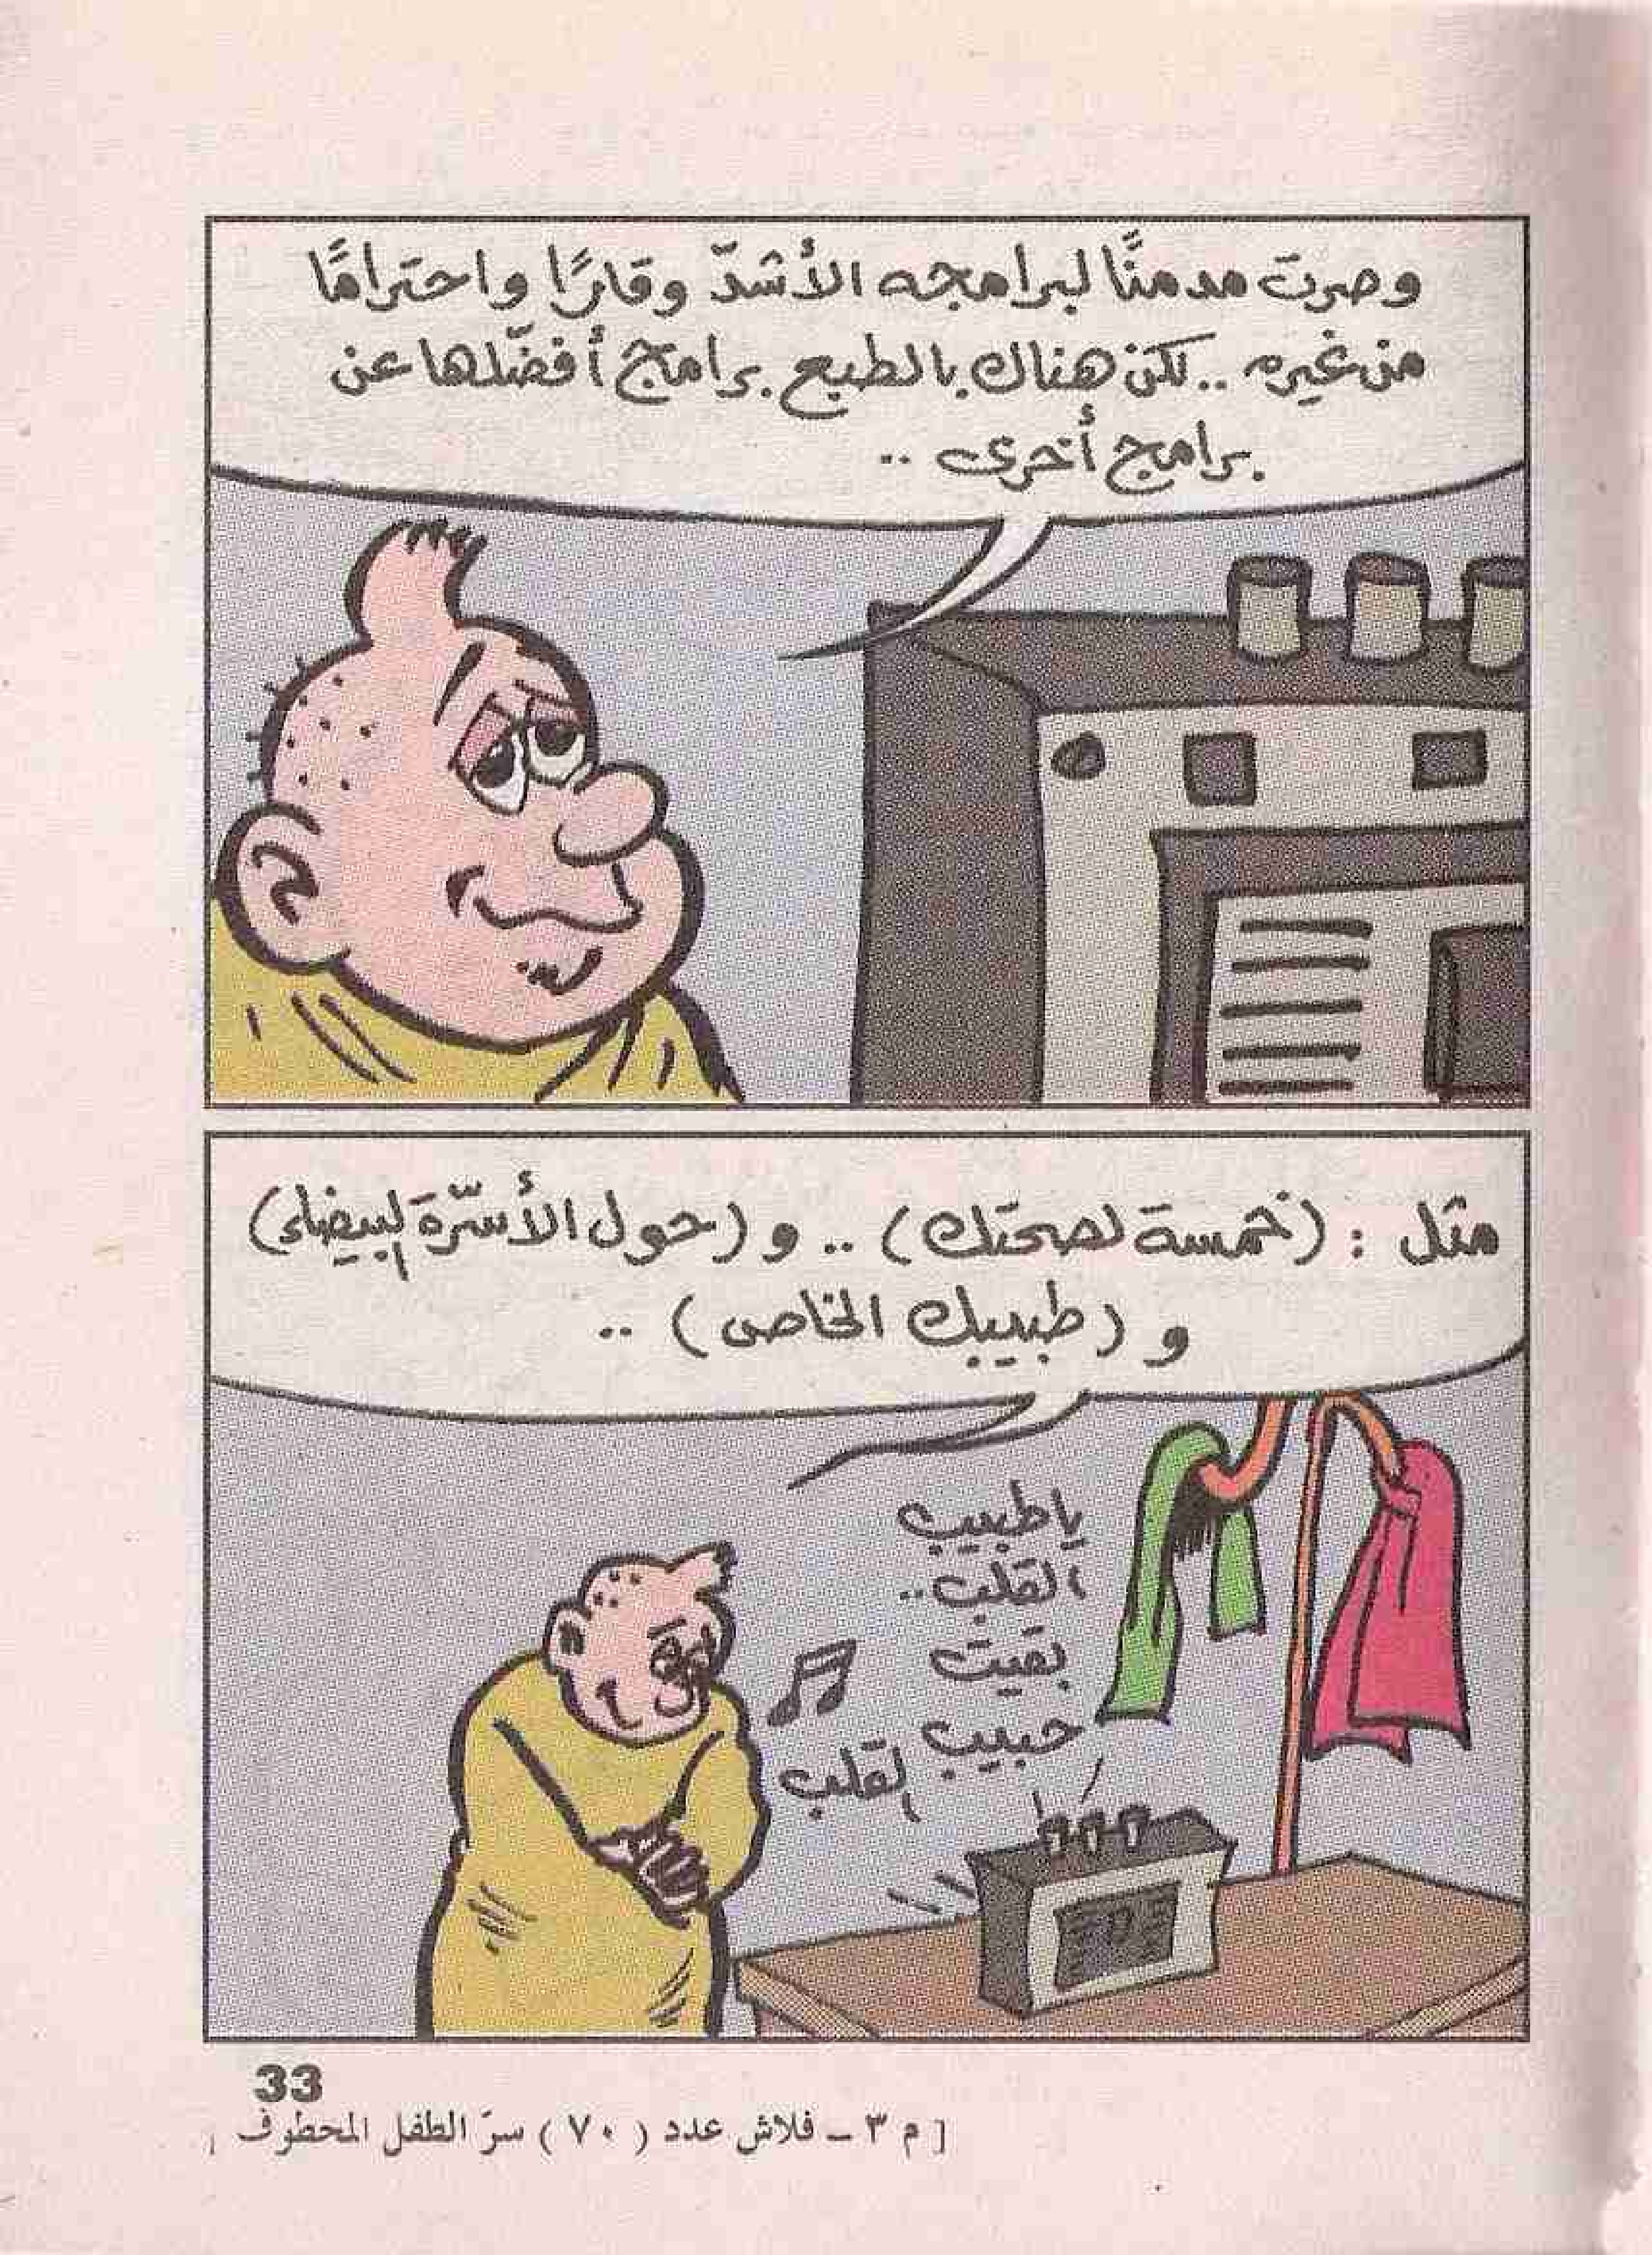 وصرت مدمنًّا لبرامجه الأشدّ وقارًا واحترامًا
من غيره .. لكن هناك بالطبع برامج أفضّلها عن
برامج أخرى ..
مثل : (خمسة لصحتك) .. و (حول الأسرّة البيضاء)
و (طبيبك الخاص) ..
ياطبيب
القلب ..
بقيت
حبيب
القلب
33
[ م ٣ ــ فلاش عدد ( ٧٠ ) سرّ الطفل المخطوف ]